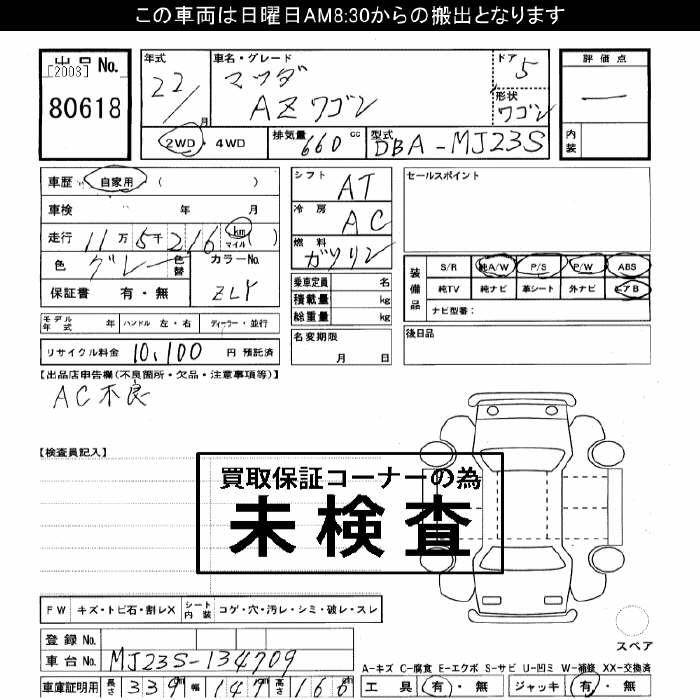 この車両は日曜日AM8:30からの搬出となります
出品No.
[2003]
80618
年式
22/
月
車名・グレード
マツダ
AZワゴン
ドア
5
形状
ワゴン
評価点
一
内装
2WD・4WD
排気量
660
cc
型式
DBA-MJ23S
車歴
自家用
(
)
車検
年
月
走行
11万5千216
km
マイル
(
)
色
グレー
色替
カラーNo.
ZLY
保証書
有・無
シフト
AT
冷房
AC
燃料
ガソリン
乗車定員
名
積載量
kg
総重量
kg
セールスポイント
装備品
S/R
純A/W
P/S
P/W
ABS
純TV
純ナビ
革シート
外ナビ
エアB
ナビ型番:
モデル年式
年
ハンドル
左・右
ディーラー・並行
名変期限
月
日
後日品
リサイクル料金
10,100
円
預託済
【出品店申告欄(不良箇所・欠品・注意事項等)】
AC不良
【検査員記入】
買取保証コーナーの為
未検査
FW
キズ・トビ石・割レX
シート内装
コゲ・穴・汚レ・シミ・破レ・スレ
登録No.
車台No.
MJ23S-134709
車庫証明用
長さ
339
幅
147
高さ
166
スペア
A-キズ C-腐食 E-エクボ S-サビ U-凹ミ W-補修 XX-交換済
工具
有・無
ジャッキ
有・無